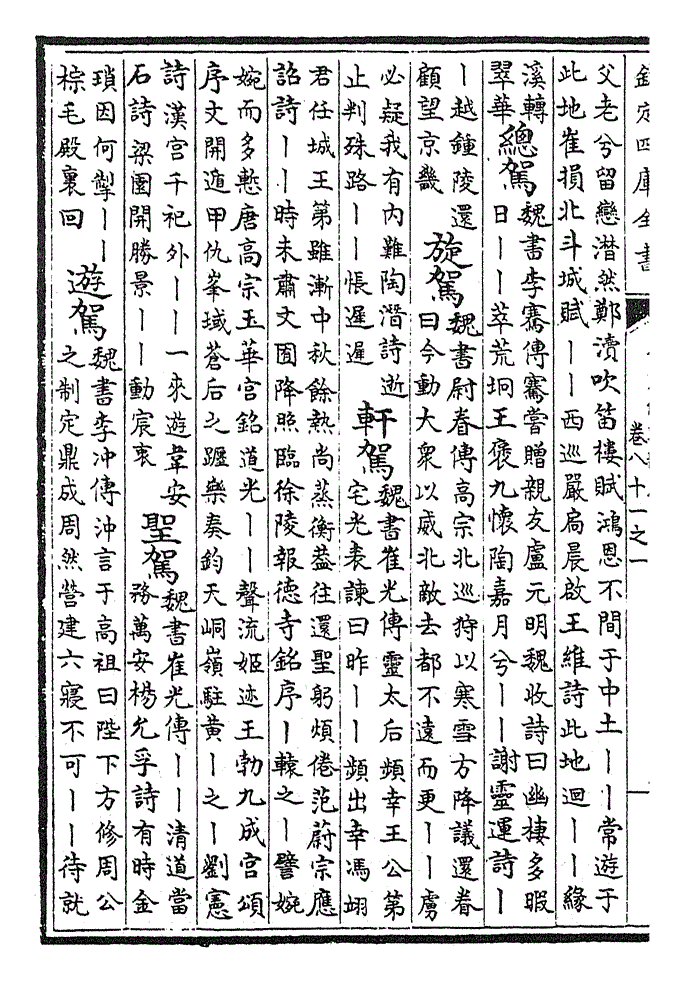 欽定四庫全書
卷八十一之一
父老兮留戀潸然鄭瀆吹笛樓賦鴻恩不間于中土丨丨常遊于
此地崔損北斗城賦丨丨西巡嚴扃晨啟王維詩此地迴丨丨緣
溪轉
翠華
總駕
魏書李騫傳騫嘗贈親友盧元明魏收詩曰幽棲多暇
日丨丨萃荒坰王褒九懷陶嘉月兮丨丨謝靈運詩丨
丨越鍾陵還
顧望京畿
旋駕
魏書尉眷傳高宗北巡狩以寒雪方降議還眷
曰今動大衆以威北敵去都不遠而更丨丨虜
必疑我有内難陶潛詩逝
止判殊路丨丨悵遲遲
軒駕
魏書崔光傳靈太后頻幸王公第
宅光表諫曰昨丨丨頻出幸馮翊
君任城王第雖漸中秋餘熱尚蒸衡葢往還聖躬煩倦范蔚宗應
詔詩丨丨時未肅文囿降照臨徐陵報德寺銘序丨轅之丨譬婉
婉而多慙唐高宗玉華宫銘道光丨丨聲流姬迹王勃九成宫頌
序文開遁甲仇峯域蒼后之躔樂奏鈞天峒嶺駐黃丨之丨劉憲
詩漢宫千祀外丨丨一來遊韋安
石詩梁園開勝景丨丨動宸衷
聖駕
魏書崔光傳丨丨清道當
務萬安楊允孚詩有時金
瑣因何掣丨丨
棕毛殿裏回
遊駕
魏書李冲傳沖言于高祖曰陛下方修周公
之制定鼎成周然營建六寢不可丨丨待就